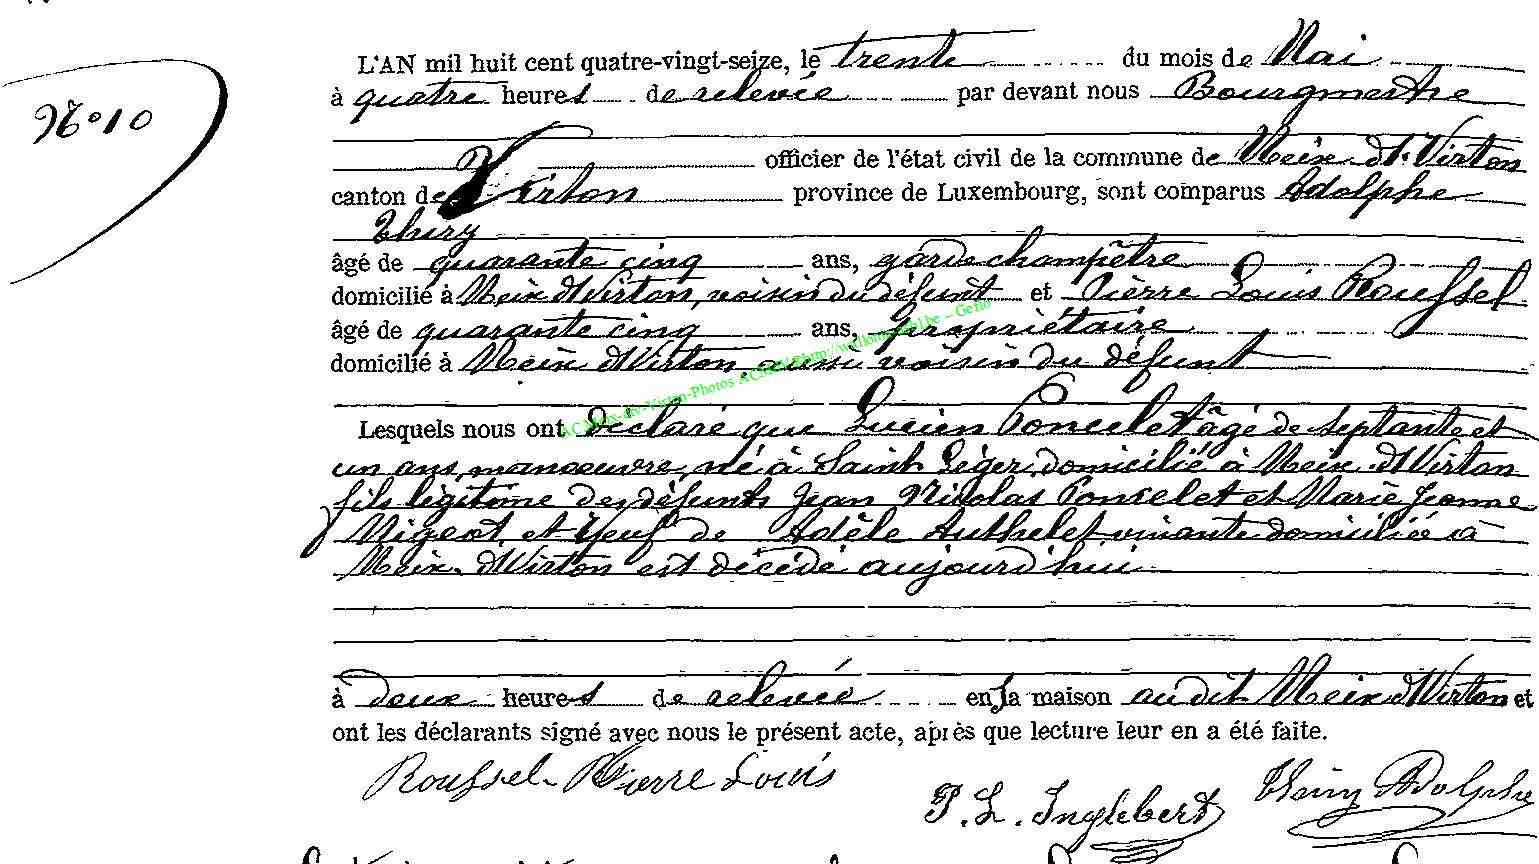 L'AN mil huit cent quatre-vingt-seize, le trente du mois de Mai
à quatre heures de relevée par devant nous Bourgmestre
N° 10
officier de l'état civil de la commune de Meix dt. Virton
canton de Virton province de Luxembourg, sont comparus Adolphe
Thiry
âgé de quarante cinq ans, garde champêtre
domicilié à Meix dt Virton, voisin du défunt et Pierre Louis Roussel
âgé de quarante cinq ans, propriétaire
domicilié à Meix dt Virton, aussi voisin du défunt
Lesquels nous ont déclaré que Lucien Poncelet âgé de septante et
un ans manoeuvre, né à Saint Léger, domicilié à Meix dt Virton
fils légitime des défunts Jean Nicolas Poncelet et Marie Jeanne
et veuf de Adèle Authelet vivante domiciliée à
Meix dt Virton est décédé aujourd'hui
à deux heures de relevée en la maison au dit Meix dt Virton et
ont les déclarants signé avec nous le présent acte, après que lecture leur en a été faite.
Roussel Pierre Louis
P. L. Inglebert
Thiry Adolphe